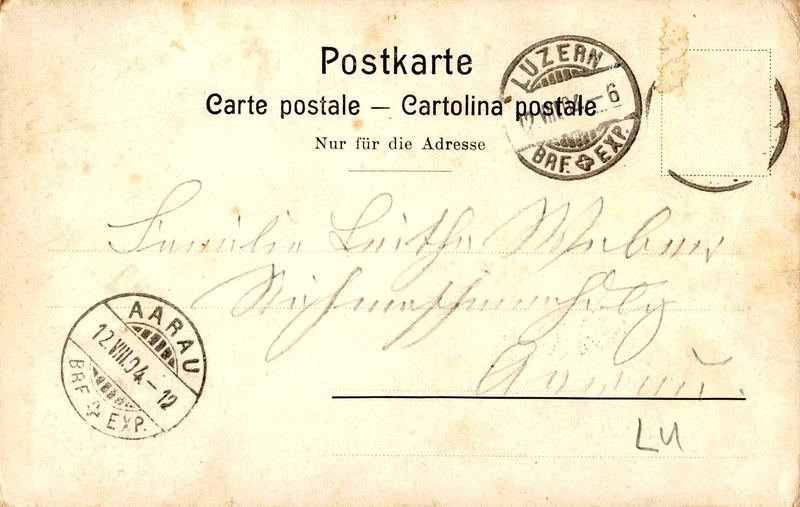 Postkarte
Carte postale — Cartolina postale
Nur für die Adresse
LUZERN
12.VIII.04.-6
BRF. EXP.
Familie
Aarau.
AARAU
12.VIII.04.-12
BRF. EXP.
LU